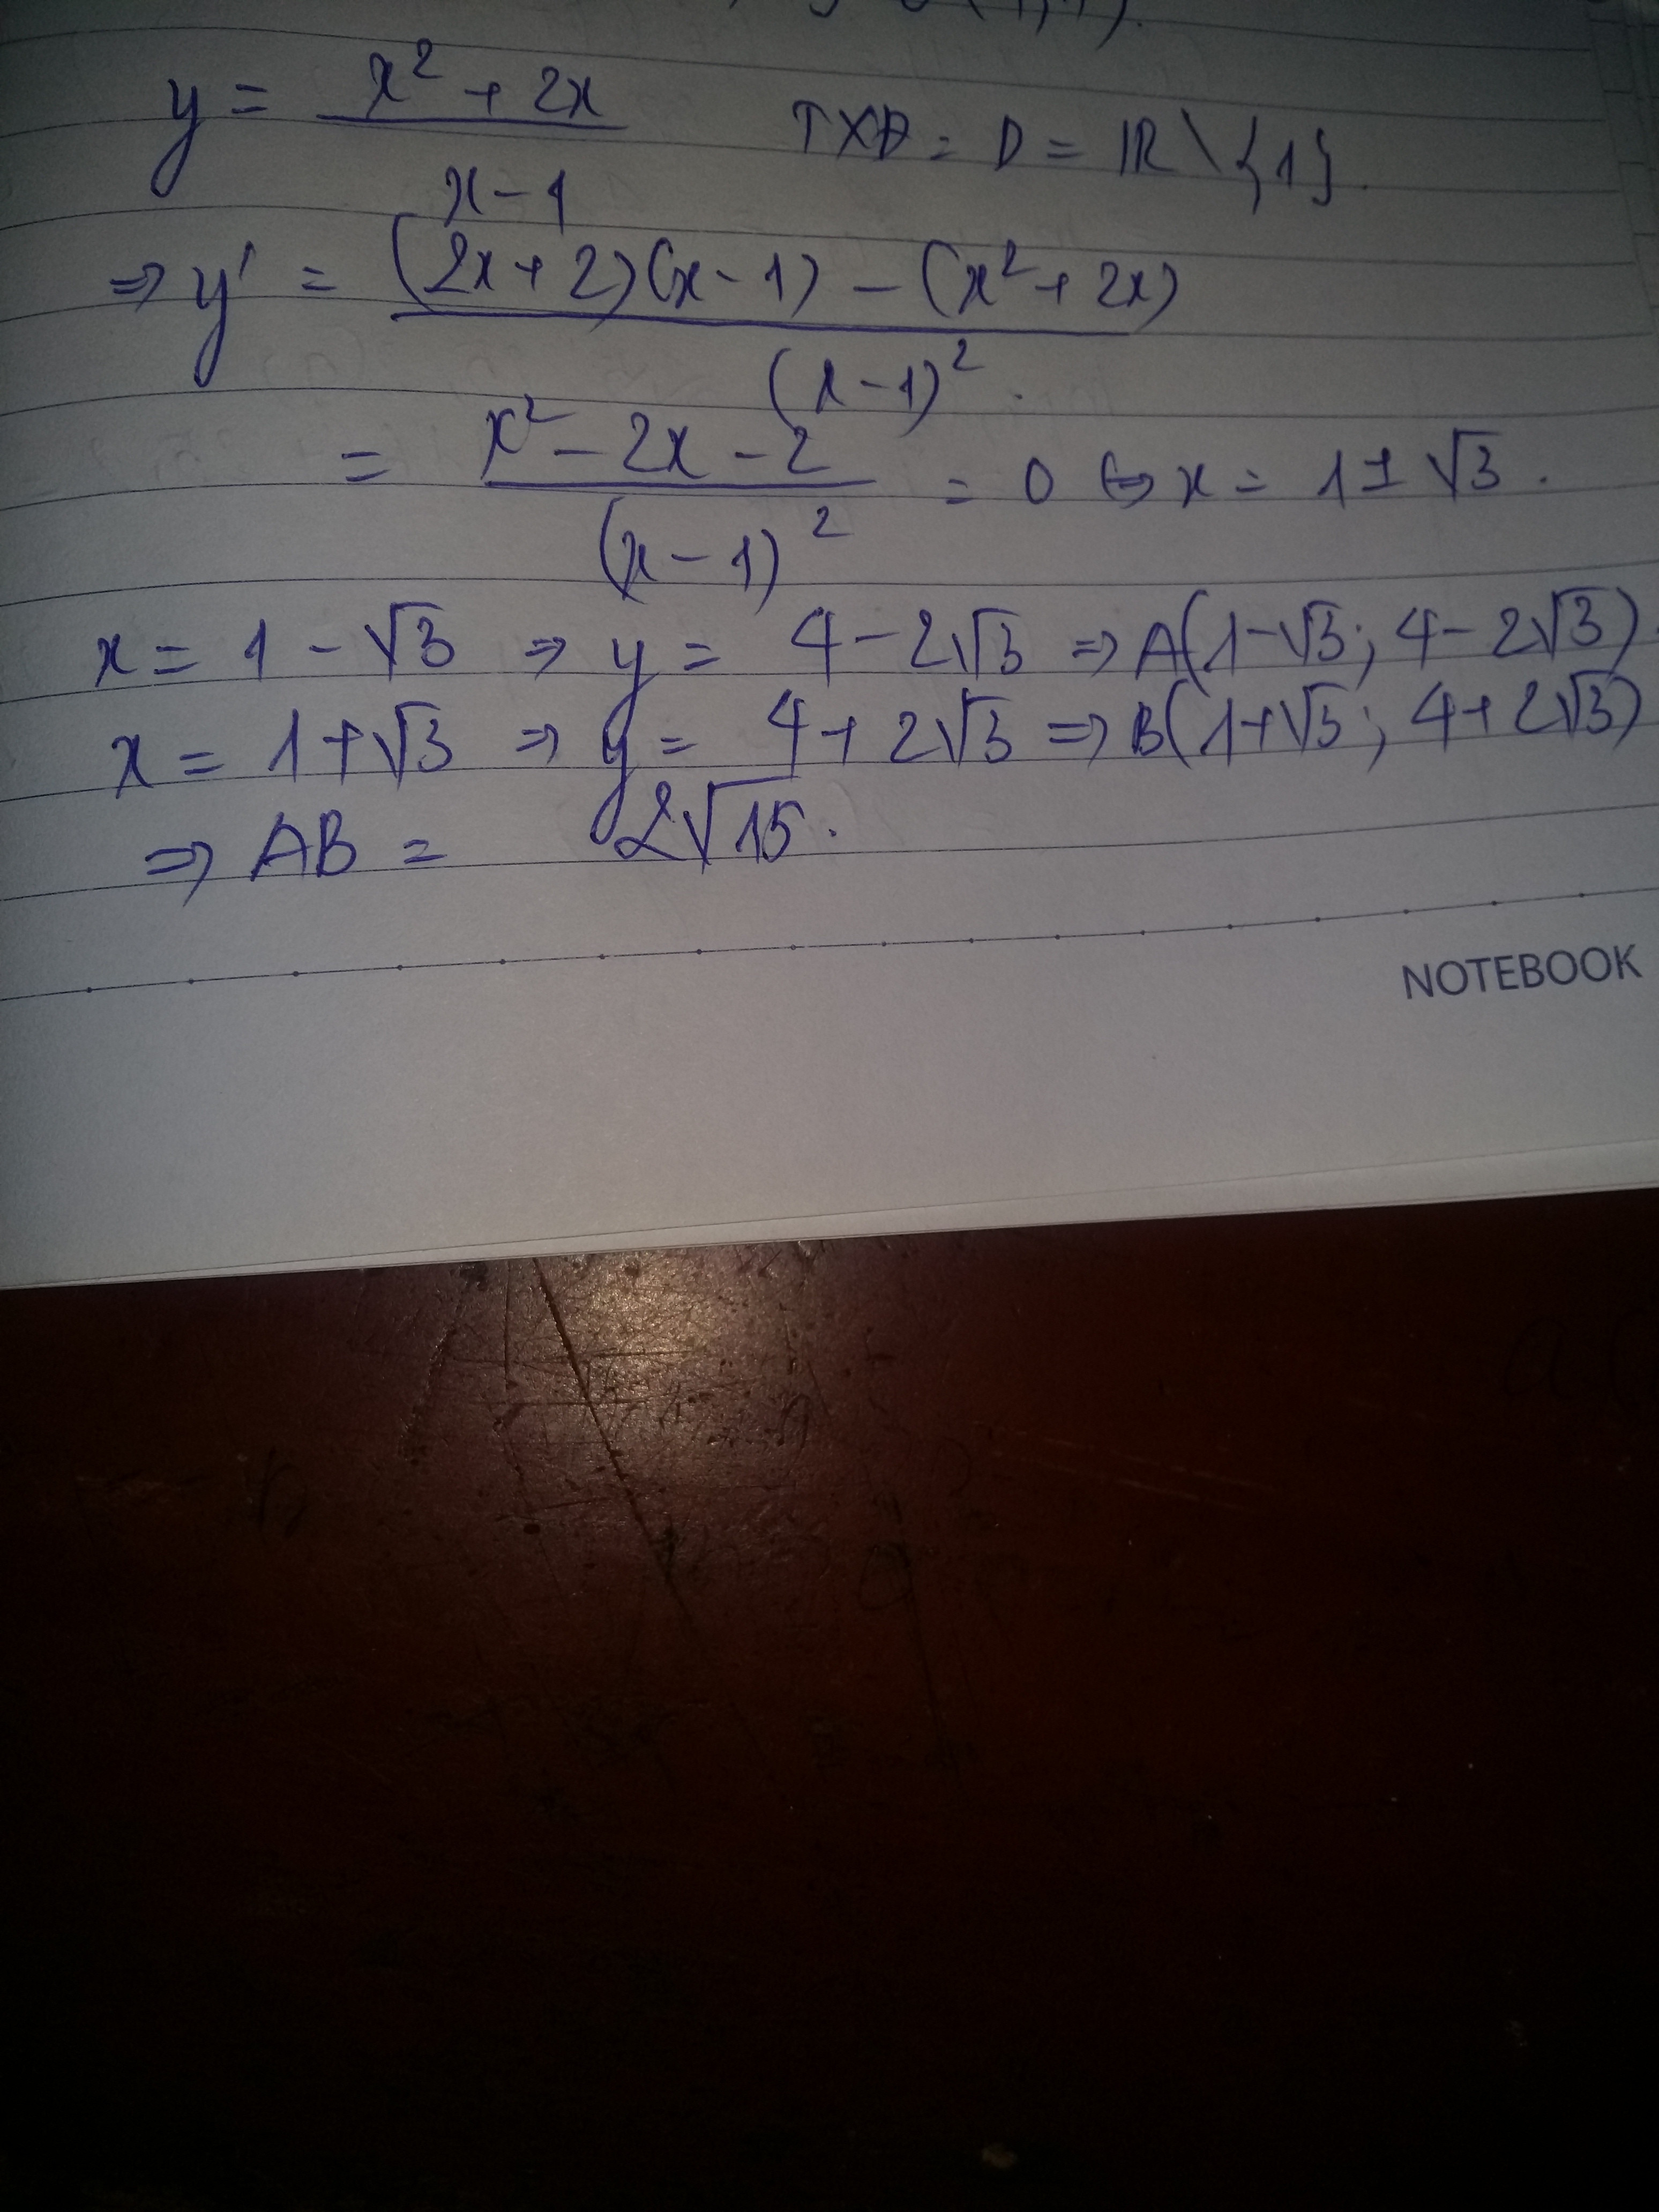 y = x² + 2x / x - 1 TXĐ = D = ℝ \ {1}.
⇒ y' = (2x + 2)(x - 1) - (x² + 2x) / (x - 1)².
= x² - 2x - 2 / (x - 1)² = 0 ⇔ x = 1 ± √3.
x = 1 - √3 ⇒ y = 4 - 2√3 ⇒ A(1 - √3; 4 - 2√3).
x = 1 + √3 ⇒ y = 4 + 2√3 ⇒ B(1 + √3; 4 + 2√3)
⇒ AB = 2√15.
NOTEBOOK